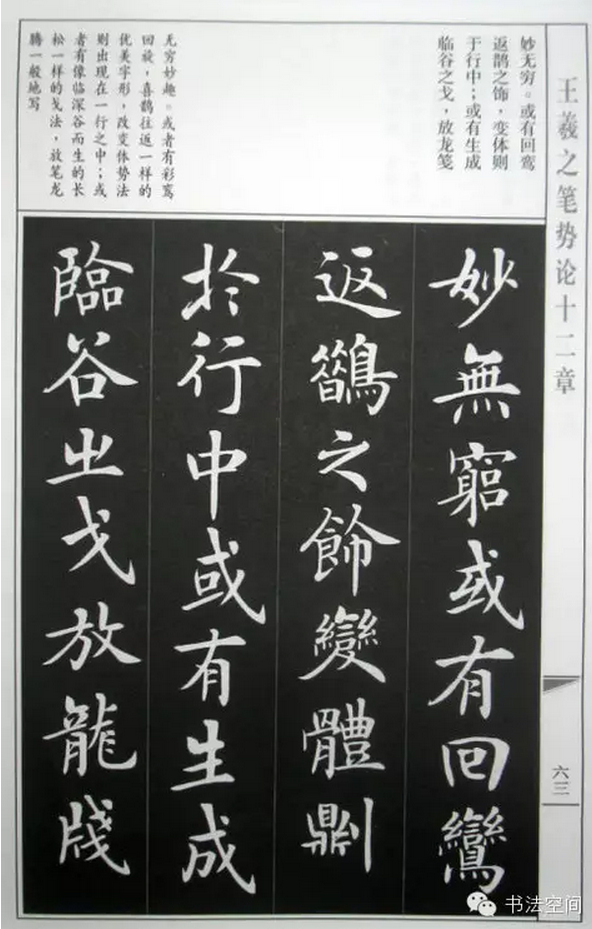 王羲之笔势论十二章
妙无穷。或有回鸾
返鹊之饰，变体则
于行中；或有生成
临谷之戈，放龙笺
无穷妙趣。或者有彩鸾
回旋，喜鹊往返一样的
优美字形，改变体势法
则出现在一行之中；或
者有像临深谷而生的长
松一样的戈法，放笔龙
腾一般地写
妙無窮或有回鸞
返鵲之飾變體則
於行中或有生成
臨谷之戈放龍牋
六三
书法空间